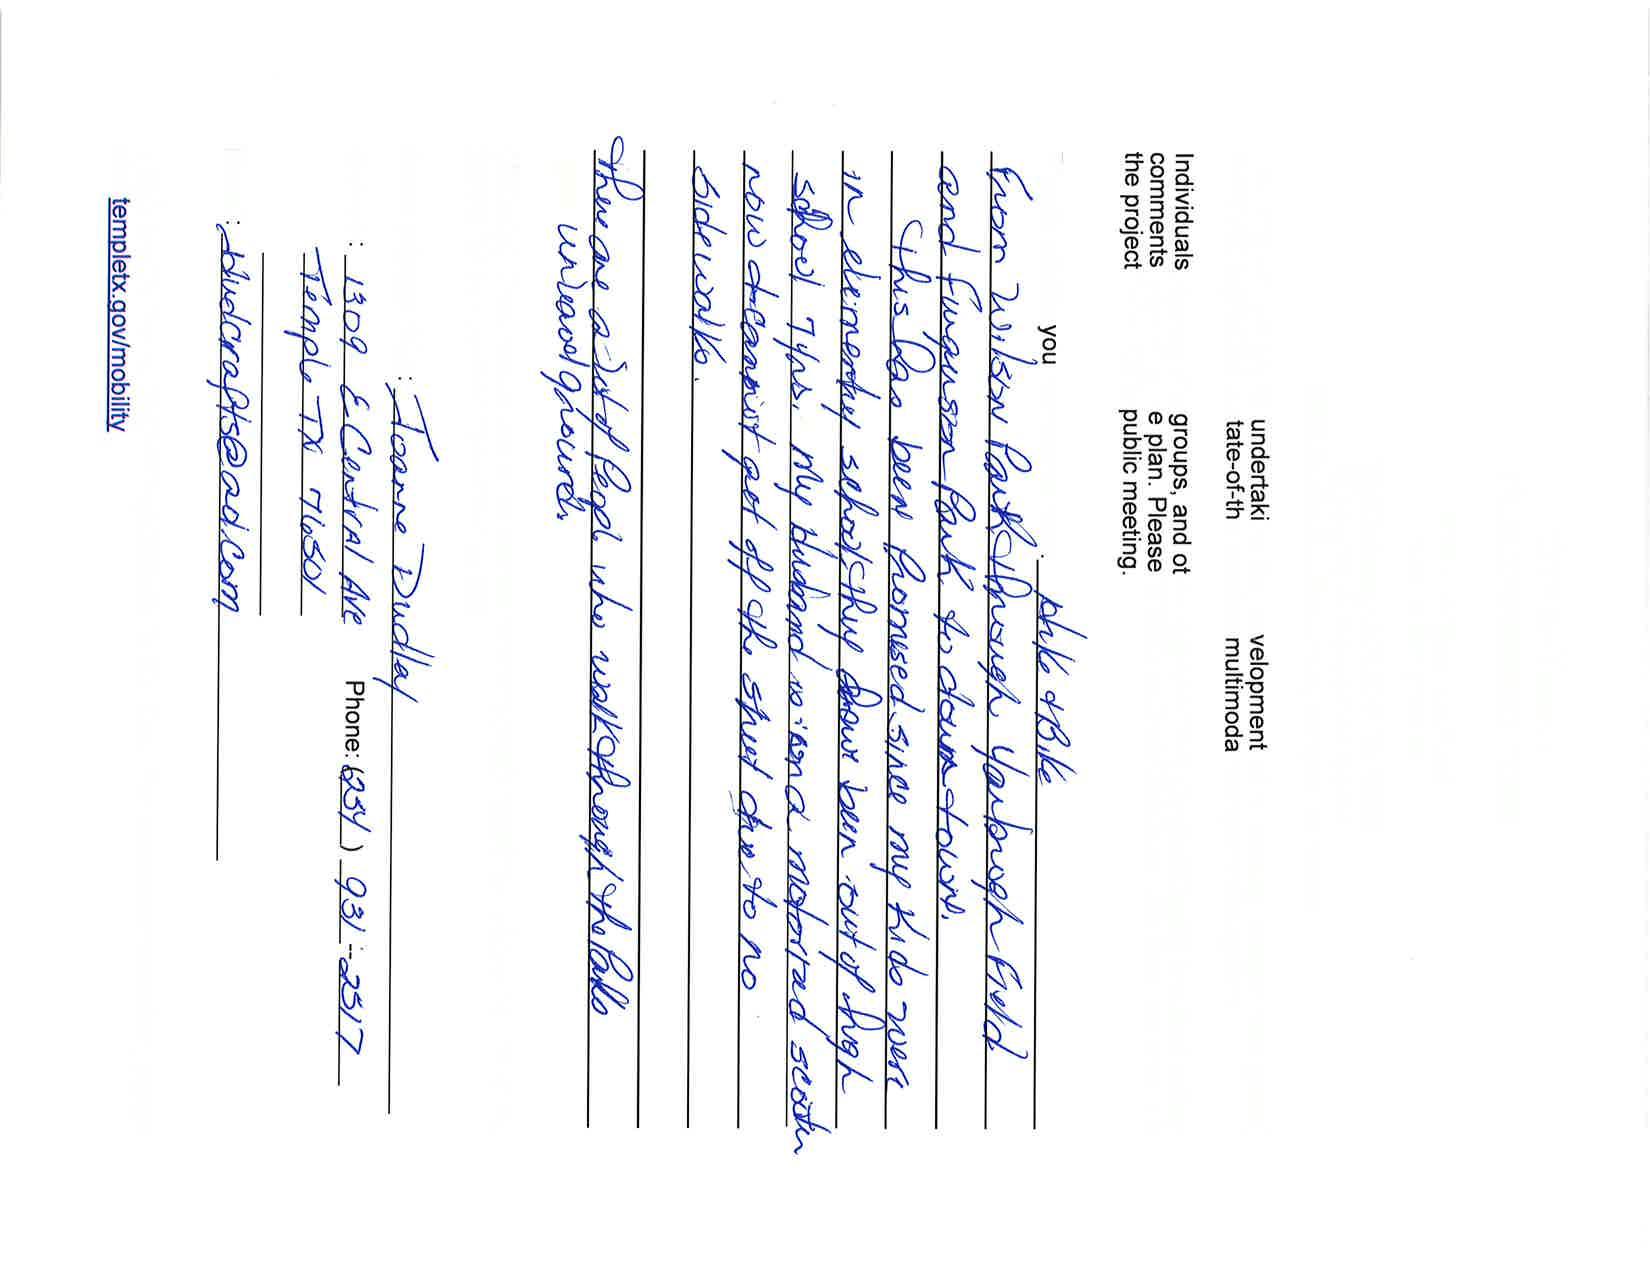 undertaki velopment
tate-of-th multimoda
Individuals groups, and ot
comments e plan. Please
the project public meeting.
you Hike & Bike
From Wilson Park through Yarbrough Field
and Furguson Park to down town.
This has been promised since my kids were
in elementry school they have been out of high
school 7 yrs. My husband is on a motorized scooter
now & cannot get off the street due to no
sidewalks.
There are a lot of peopl who walk through the Parks
unleavel grounds.
: Joanne Dudley
: 1309 E Central Ave Phone: (254) 931-2517
Temple TX 76501
: dudcrafts@aol.com
templetx.gov/mobility